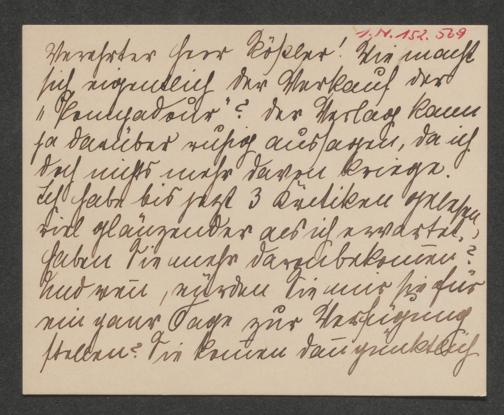 I.N. 152.569
Verehrter Herr Kößler! Wie macht
sich eigentlich der Verkauf der
"Pompadour"? Der Verlag kann
ja darüber ruhig aussagen, da ich
doch nichts mehr davon kriege.
Ich habe bis jetzt 3 Kritiken gelesen,
viel glänzender als ich erwartet.
Haben Sie mehr darüber bekommen?
Und wenn, würden Sie mir sie für
ein paar Tage zur Verfügung
stellen? Sie kom̅en dan̅ pünktlich